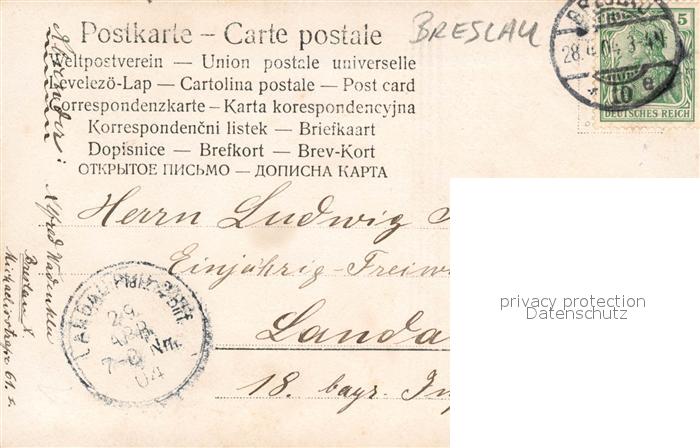 Postkarte – Carte postale
BRESLAU
eltpostverein — Union postale universelle
evelezö-Lap — Cartolina postale — Post card
orrespondenzkarte – Karta korespondencyjna
Korrespondenční listek — Briefkaart
Dopisnice — Brefkort — Brev-Kort
ОТКРЫТОЕ ПИСЬМО — ДОПИСНА КАРТА
5
DEUTSCHES REICH
BRESLAU
28. 4. 04. 3-4N
* 10 e
Herrn Ludwig
Einjährig-Freiw
Landa
18. bayr. Inf
LANDAU PFALZ
29
APR
7-8 Nm.
04
Absender:
Alfred
Breslau X.
Michaelisstraße 61.
privacy protection
Datenschutz